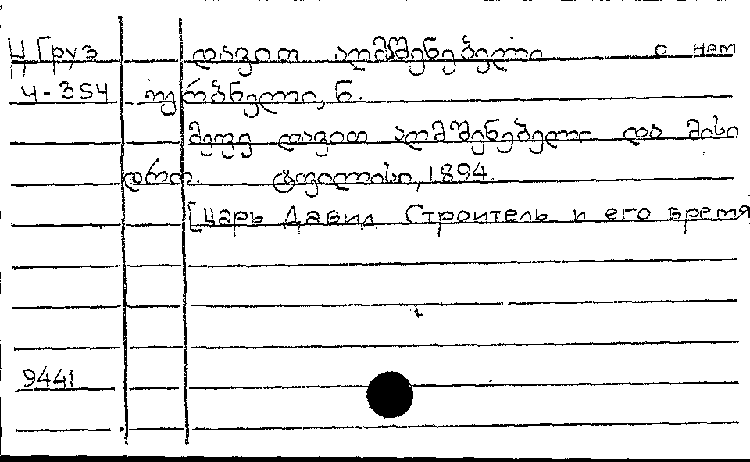 Ц Груз დავით აღმაშენებელი о нем
4-354 ურბნელი, ნ.
მეფე დავით აღმაშენებელი და მისი
დრო. ტფილისი, 1894.
[Царь Давид Строитель и его время
9441